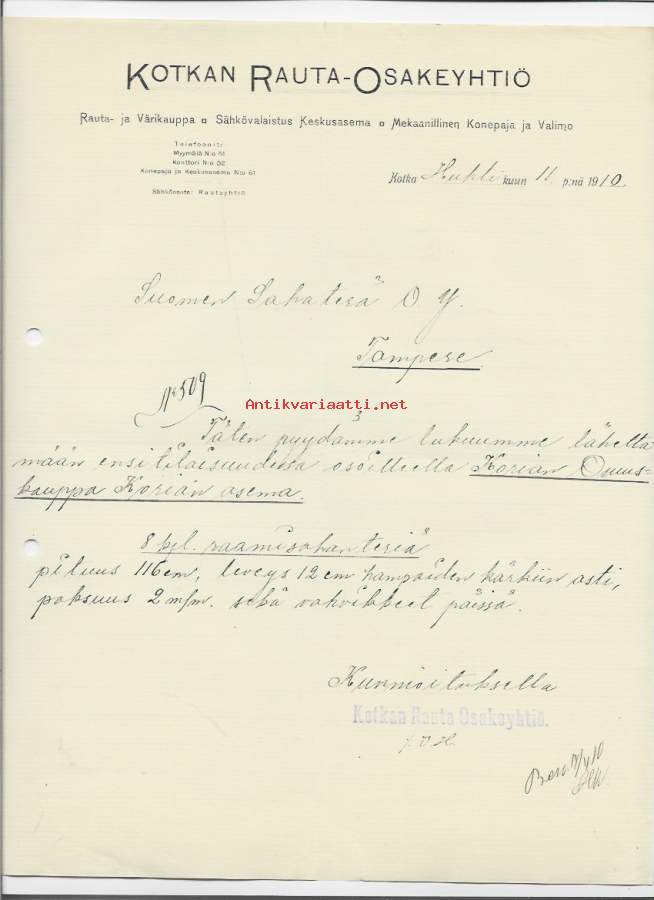 KOTKAN RAUTA-OSAKEYHTIÖ
Rauta- ja Värikauppa ¤ Sähkövalaistus Keskusasema ¤ Mekaanillinen Konepaja ja Valimo
Telefoonit:
Myymälä N:o 61
Konttori N:o 52
Konepaja ja Keskusasema N:o 67
Sähköosote: Rautayhtiö
Kotka Huhti kuun 11 p:nä 1910.
Suomen Sahaterä O Y.
Tampere.
No 509
Antikvariaatti.net
Täten pyydämme lukuumme lähettä-
mään ensi tilaisuudessa osoitteella Korian Osuus-
kauppa Korian asema.
8 kpl. raamisahanteriä
pituus 116 cm, leveys 12 cm hampaiden kärkiin asti,
paksuus 2 m/m. sekä vahvikkeet päissä.
Kunnioituksella
Kotkan Rauta Osakeyhtiö.